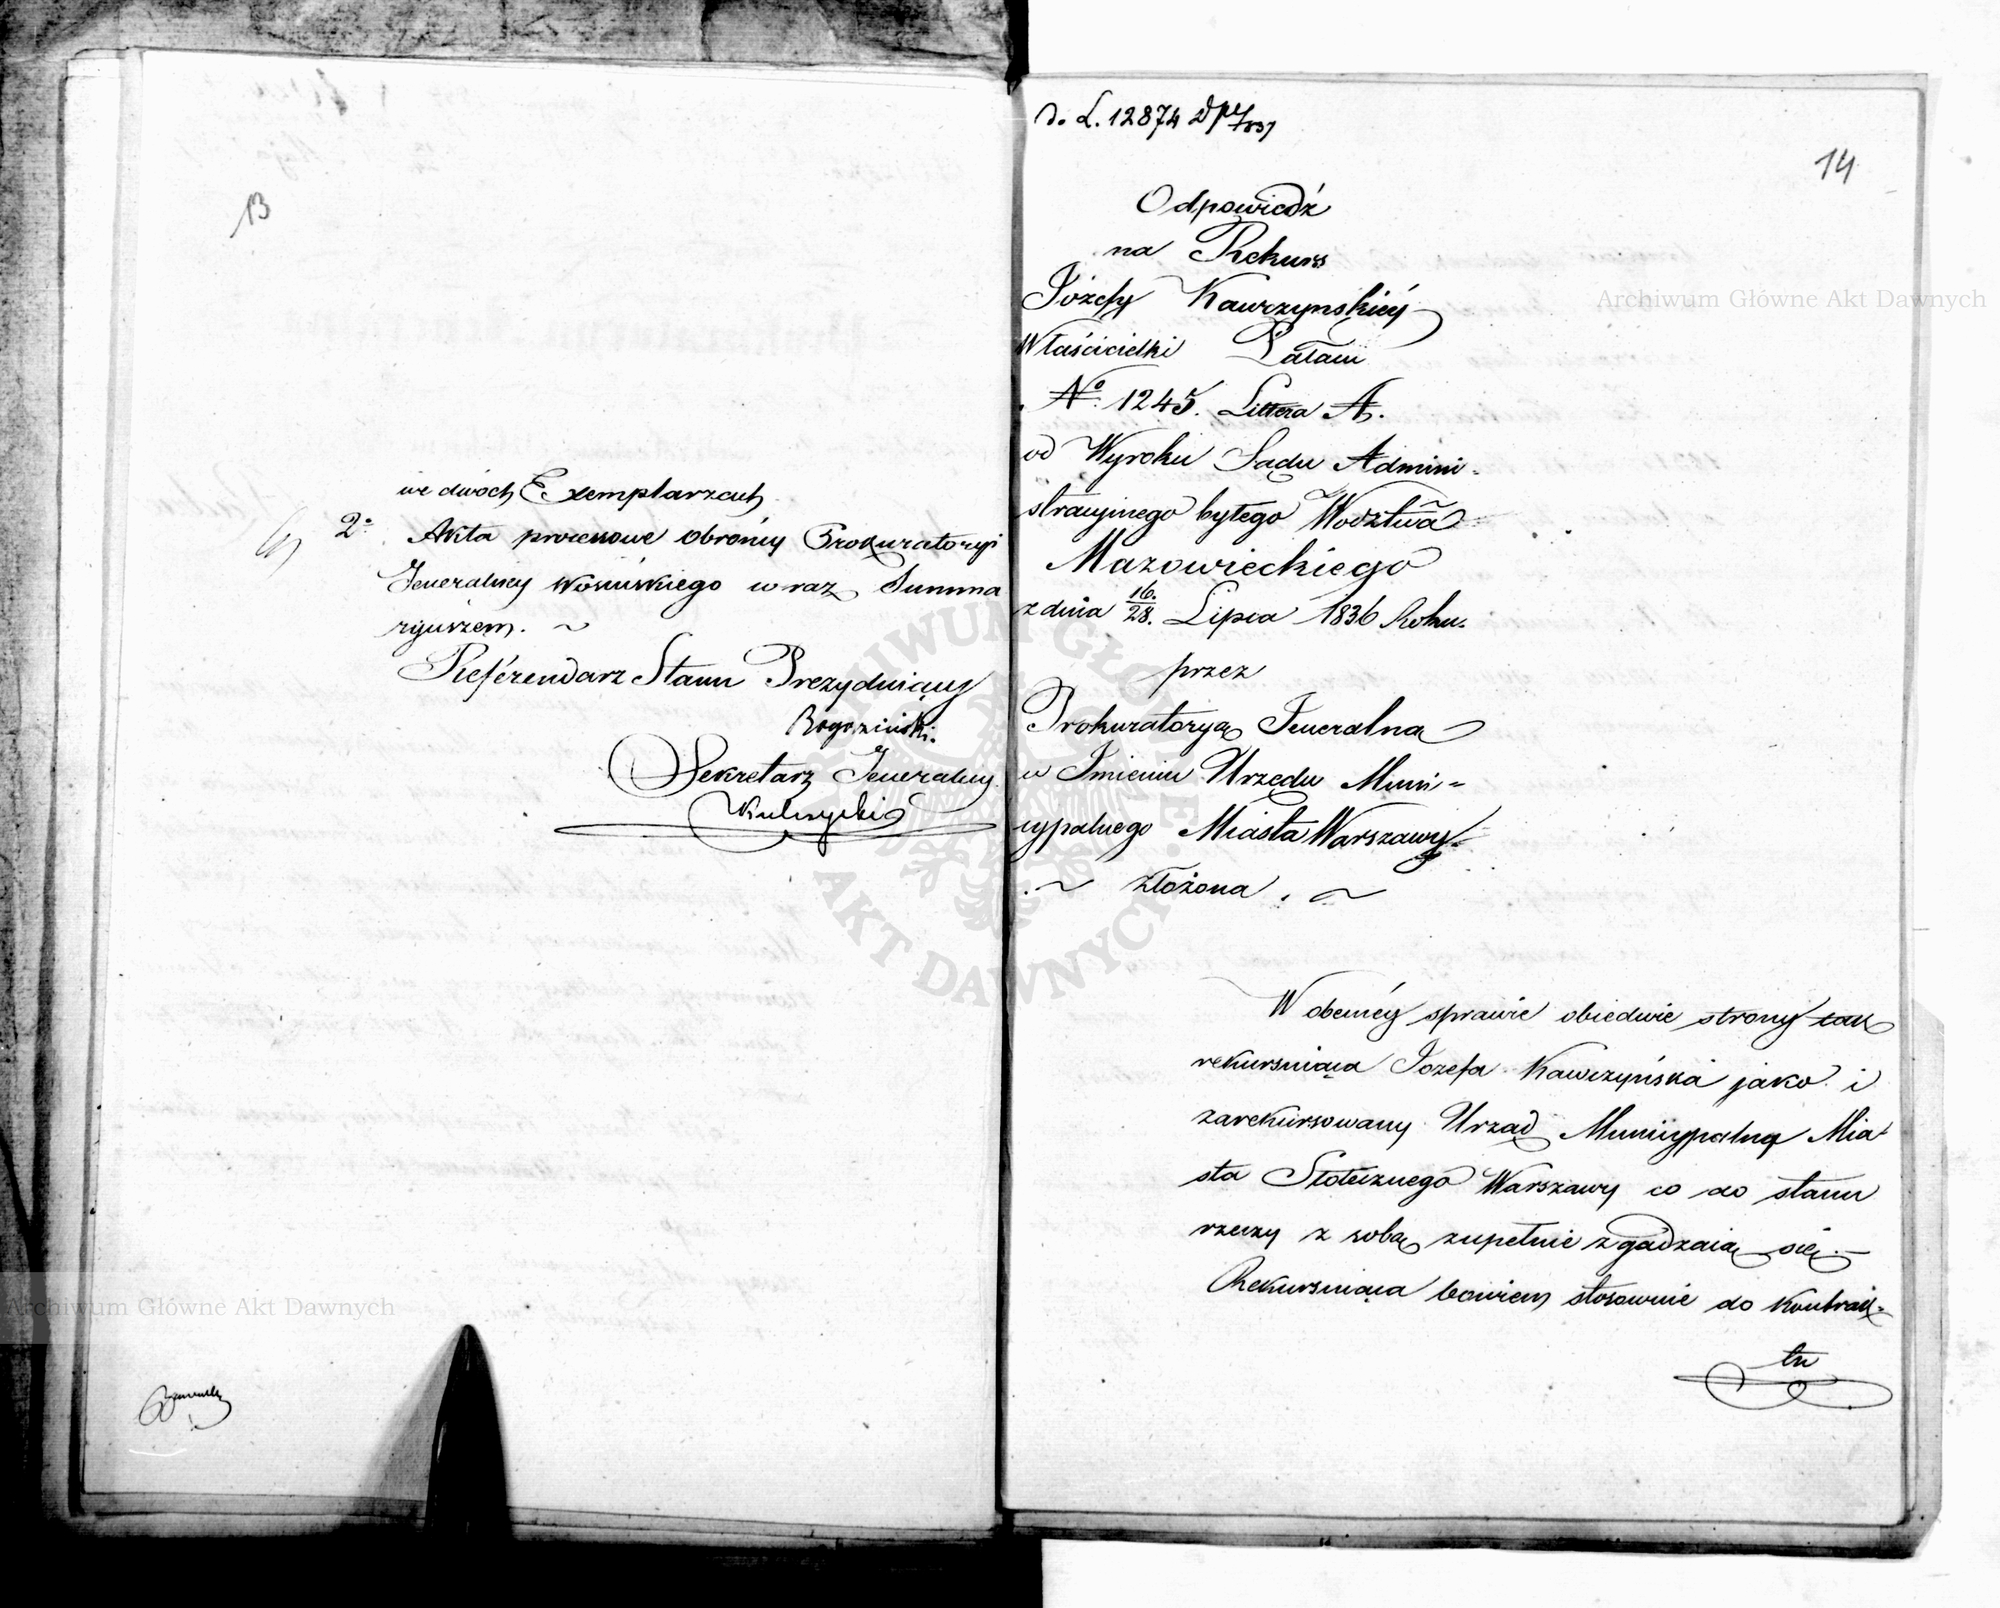 13
we dwóch Exemplarzach
2o. Akta processowe obrońcy Prokuratoryi
Jeneralnéy Wosińskiego wraz Summa
ryuszem.
Referendarz Stanu Prezyduiący
Sekretarz Jeneralny
Do L. 12874
14
Odpowiedź
na Rekurs
Józefy Kawczyńskiéy
Właścicielki Pałacu
No. 1245. Littera A.
od Wyroku Sądu Admini-
stracyinego byłego Wodztwa
Mazowieckiego
z dnia 16./28. Lipca 1836 Roku.
przez
Prokuratoryą Jeneralną
w Imieniu Urzędu Muni-
cypalnego Miasta Warszawy
złożona.
W obecnéy sprawie obiedwie strony tak
rekursuiąca Jozefa Kawczyńska jako i
zarekursowany Urząd Municypalny Mia
sta Stołecznego Warszawy co do stanu
rzeczy z sobą zupełnie zgadzaią się.—
Rekursuiąca bowiem stosownie do Kontrak-
tu
Archiwum Główne Akt Dawnych
Archiwum Główne Akt Dawnych
ARCHIWUM GŁÓWNE AKT DAWNYCH